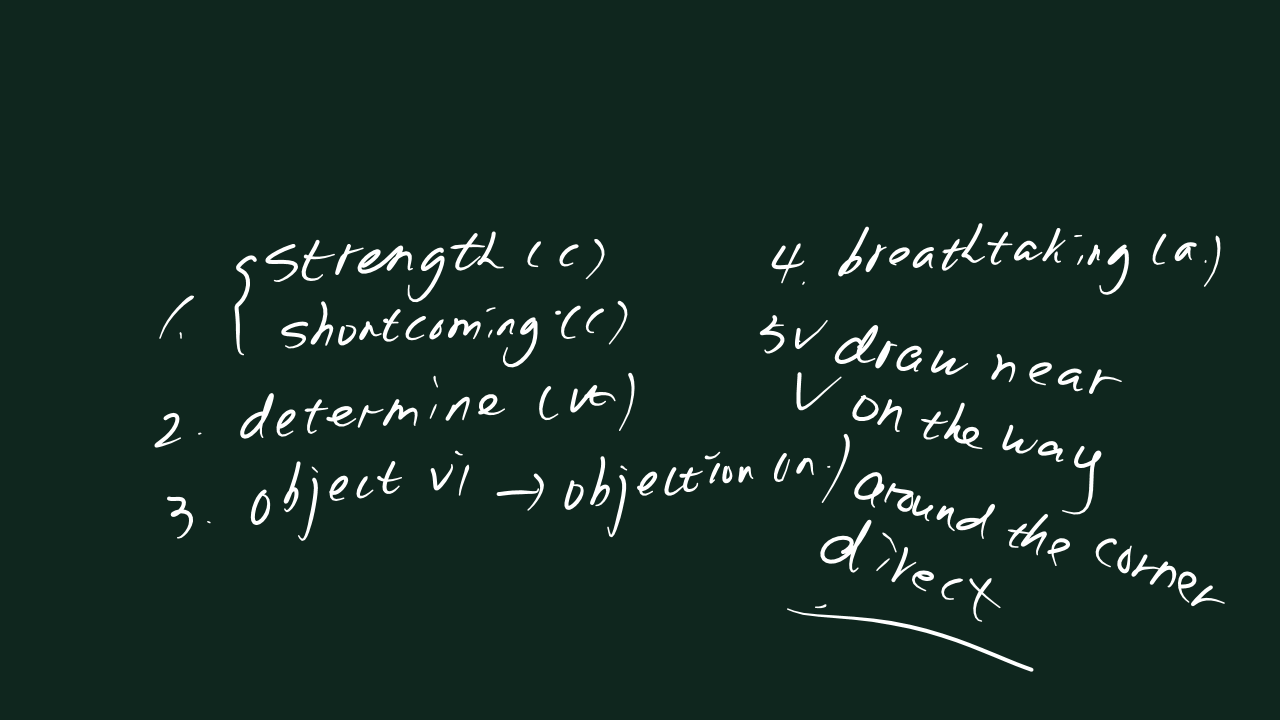 1. { strength (c)
shortcoming (c)
2. determine (vt)
3. object vi → objection (n.)
4. breathtaking (a.)
5 √ draw near
√ on the way
around the corner
direct